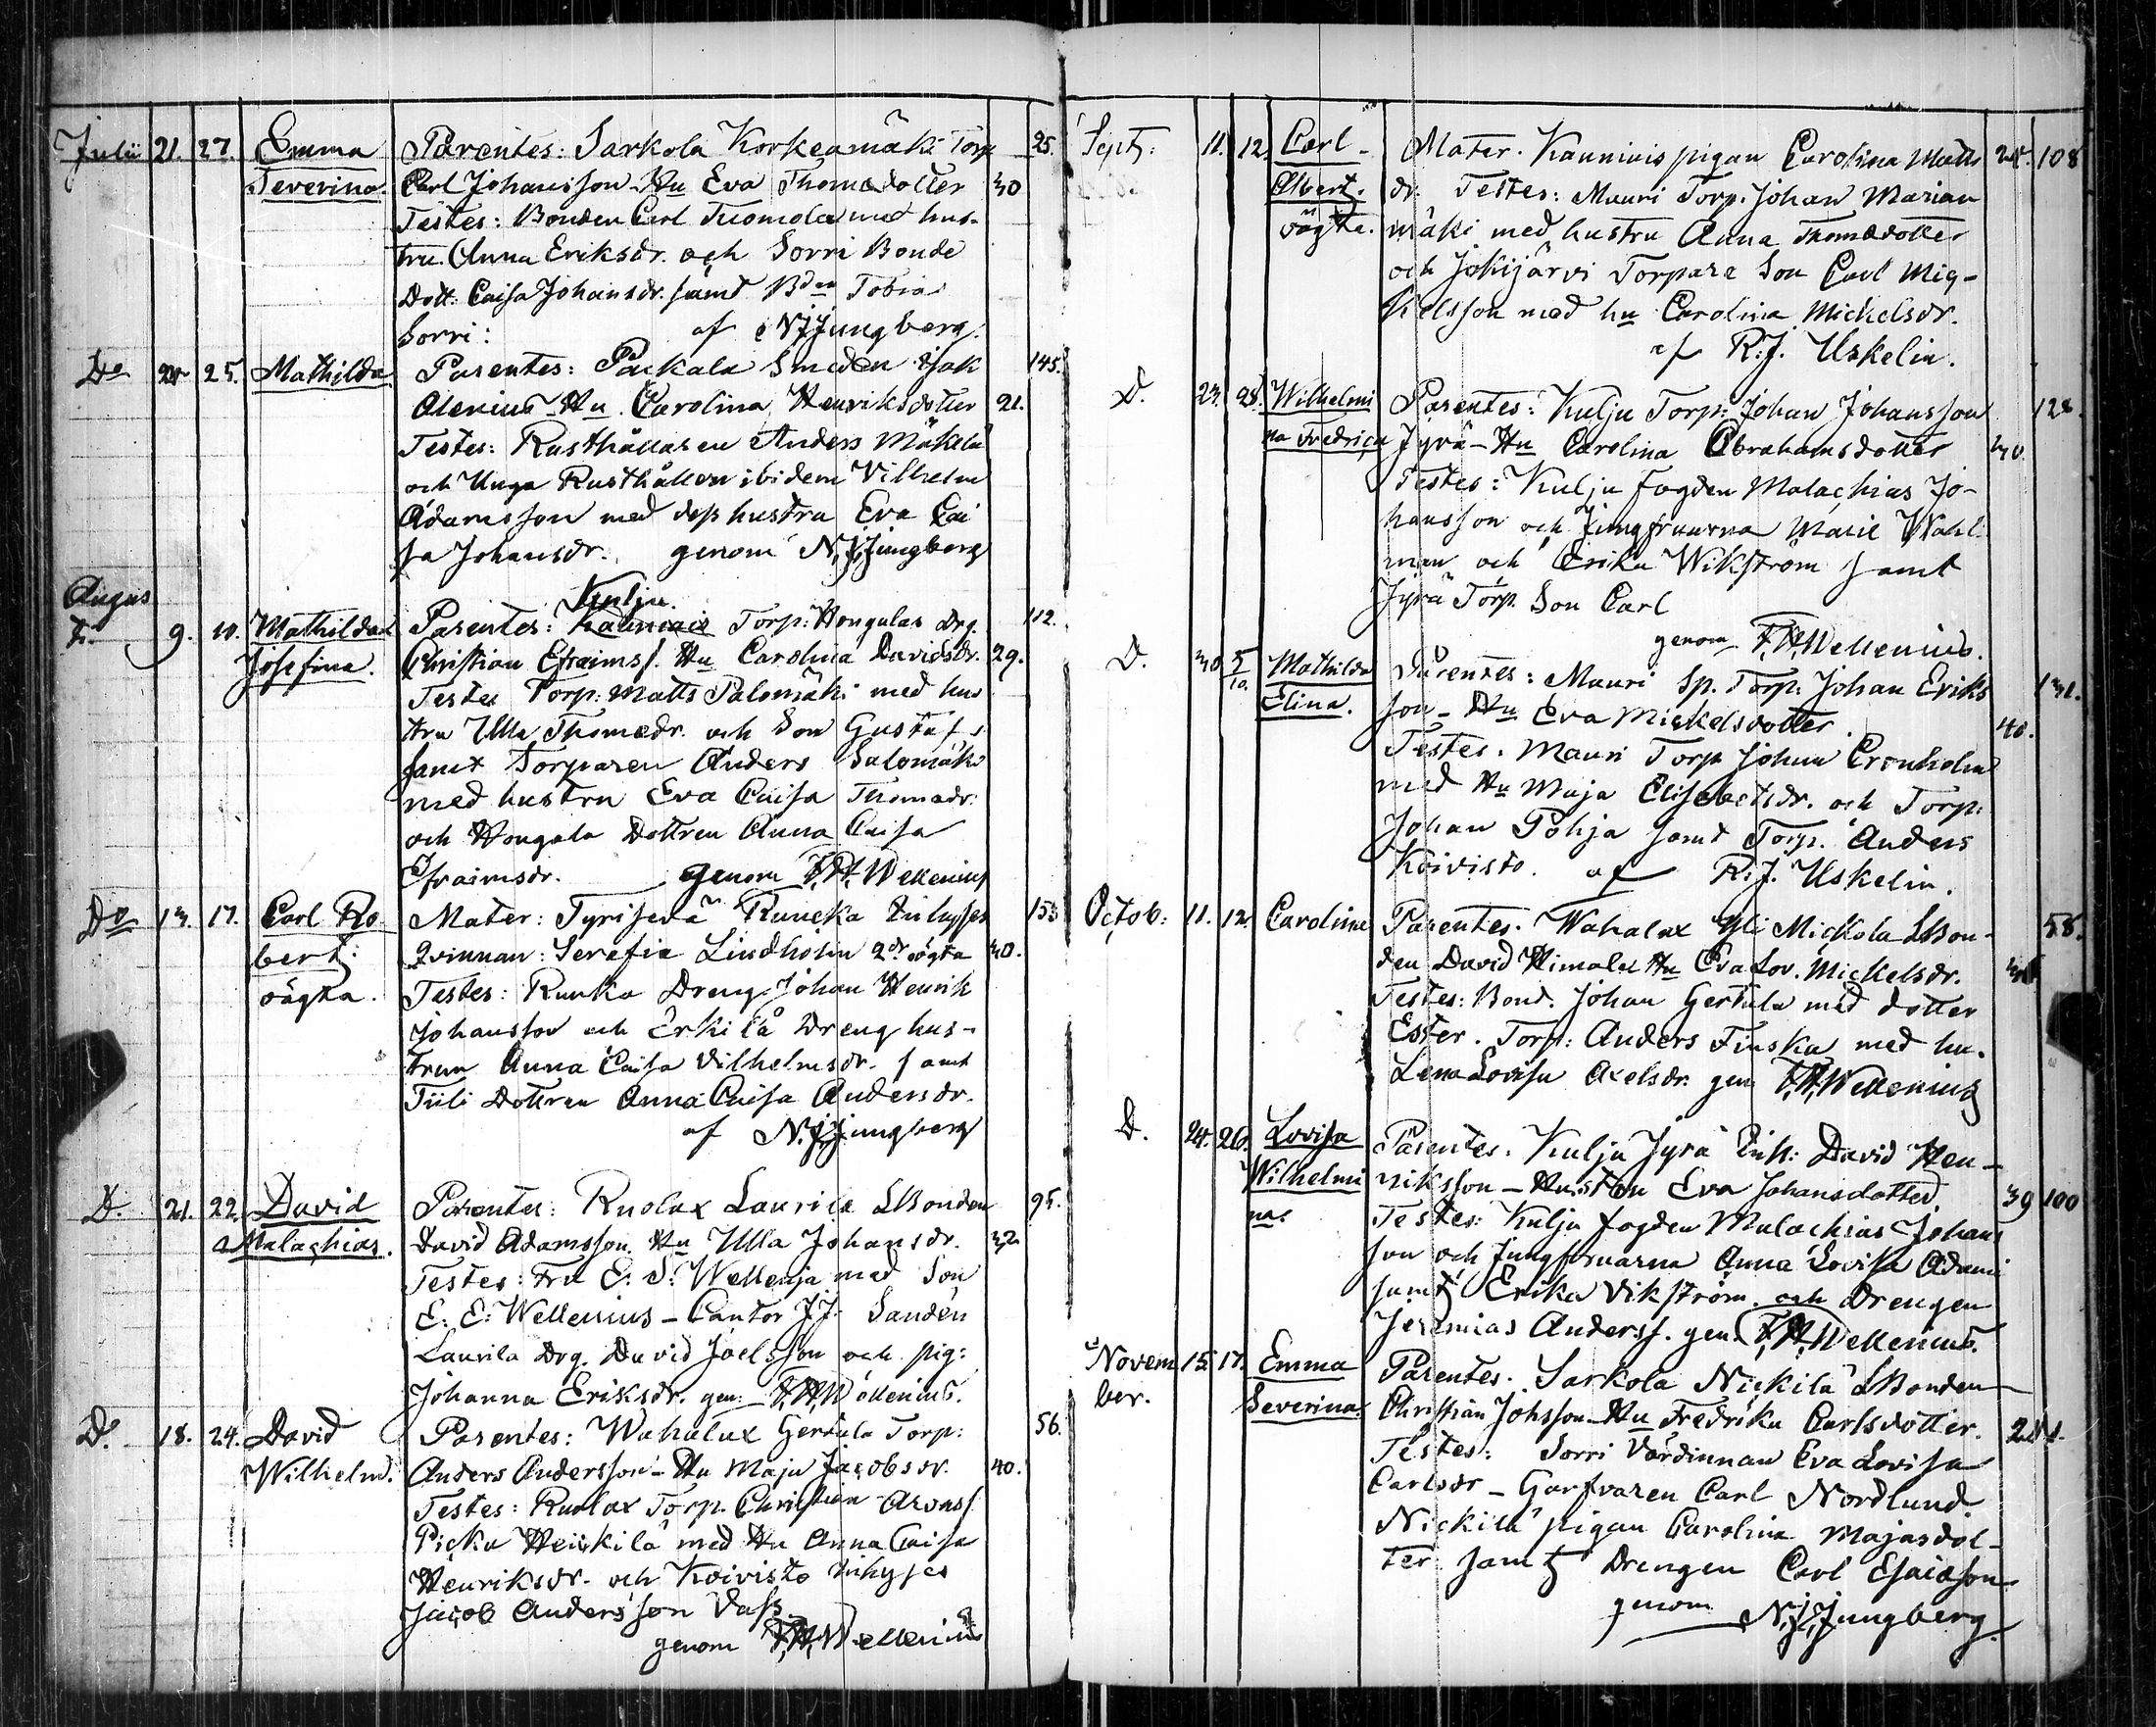 Julii 21. 27. Emma Parentes: Sarkola Korkeamäki Torp 25.
Severina. Carl Johansson Hu Eva Thomædotter 30
Testes: Bonden Carl Tuomola med hus-
tru Anna Eriksdr. och Sorri Bonde
Dott: Caisa Johansdr. samt Bden Tobias
Sorri: af N.J. Jungberg.
Do 25. Mathilda Parentes: Packala Smeden Isak 145.
Alenius Hu. Carolina Henriksdotter 21.
Testes: Rusthållaren Anders Mäkelä
och Unga Rusthållarn ibidem Vilhelm
Adamsson med dess hustru Eva Cai
sa Johansdr. genom N.J. Jungberg
Augus Kulju.
t. 9. 10. Mathilda Parentes: Kauniais Torp: Hongulas Drg. 112.
Josefina. Christian Efraimss. Hu Carolina Davidsdr. 29.
Testes Torp: Matts Palomäki med hus
tru Ulla Thomædr. och Son Gustaf
samt Torparen Anders Salomäki
med hustru Eva Caisa Thomædr.
och Hongola Dottren Anna Caisa
Efraimsdr. genom F.W. Wellenius
Do 13. 17. Carl Ro- Mater: Tyrisevä Runcka Inhyses 153
bert: Qvinnan: Serafia Lindholm 2dr oägta 40.
oägta. Testes: Runka Dreng. Johan Henrik
Johansson och Erkilä Dreng hus-
trun Anna Caisa Vilhelmsdr. samt
Tiili Dottren Anna Caisa Andersdr.
af N.J. Jungberg
D. 21. 22. David Parentes: Ruolax Laurila LBonden 95.
Malachias. David Adamsson. Hu Ulla Johansdr. 32
Testes: Fru E. S: Wellenia med Son
E. E: Wellenius - Cantor J.J. Sandén
Laurila Drg. David Joelsson och pig:
Johanna Eriksdr. gen: F.W. Wellenius.
D. 18. 24. David Parentes: Wahalux Gertula Torp: 56.
Wilhelm. Anders Andersson - Hu Maja Jacobsdr. 40.
Testes: Ruolax Torp. Christian Aronss.
Picku Heickilä med Hu Anna Caisa
Henriksdr. och Koivisto Inhyses
Jacob Andersson Vass
genom F.W. Wellenius
Sept: 11. 12. Carl Mater. Kauniais pigan Carolina Matts 108
Albert. dr. Testes: Mauri Torp. Johan Marian
oägta. mäki med hustru Anna Thomædotter
och Jokijärvi Torpare Son Carl Mic-
kelsson med hu Carolina Mickelsdr.
af R.J. Uskelin.
D. 23. 28. Wilhelmi Parentes: Kulju Torp: Johan Johansson 128.
na Fredrica Jyrä - Hu Carolina Abrahamsdotter 30.
Testes: Kulju Fogden Malachias Jo-
hansson och Jungfruarna Marie Wahl-
man och Erika Wikström samt
Jyrä Torp. Son Carl
genom F.W. Wellenius.
D. 30 5/10. Mathilda Parentes: Mauri Sp. Torp: Johan Eriks 131.
Elina. son - Hu Eva Mickelsdotter. 40.
Testes. Mauri Torp Johan Cronholm
med Hu Maja Elisabetsdr. och Torp:
Johan Pohja samt Torp. Anders
Koivisto. af R.J. Uskelin.
Octob: 11. 12. Carolina Parentes. Wahalax Yli Mickola LBon- 58.
den David Himala Hu Eva Lov. Mickelsdr.
Testes: Bond. Johan Gertula med dotter
Ester. Torp: Anders Finska med hu.
Lena Lovisa Axelsdr. gen F.W. Wellenius
D. 24. 26. Lovisa Parentes. Kulju Jyrä Inh: David Hen-
Wilhelmi riksson - Hustru Eva Johansdotter 39 100
na. Testes: Kulju fogden Malachias Johans
son och Jungfruarna Anna Lovisa Adami
samt Erika Vikström och Drengen
Jeremias Anderss. gen. F.W. Wellenius.
Novem 15. 17. Emma Parentes. Sarkola Nickilä LBonden
ber. Severina. Christian Johsson - Hu Fredrika Carlsdotter.
Testes: Sorri Värdinnan Eva Lovisa
Carlsdr - Garfvaren Carl Nordlund
Nickilä pigan Carolina Majasdot-
ter samt Drengen Carl Esaiasson
genom N.J. Jungberg.